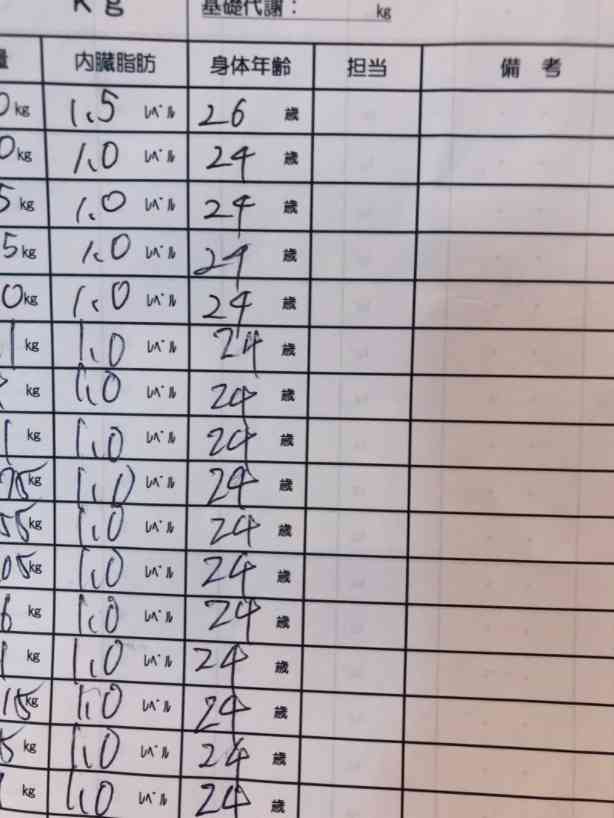 Kg
基礎代謝： kg
量 内臓脂肪 身体年齢 担当 備考
0kg 1.5 レベル 26 歳
0kg 1.0 レベル 24 歳
5kg 1.0 レベル 24 歳
5kg 1.0 レベル 24 歳
0kg 1.0 レベル 24 歳
1kg 1.0 レベル 24 歳
kg 1.0 レベル 24 歳
1kg 1.0 レベル 24 歳
75kg 1.0 レベル 24 歳
55kg 1.0 レベル 24 歳
05kg 1.0 レベル 24 歳
6kg 1.0 レベル 24 歳
1kg 1.0 レベル 24 歳
15kg 1.0 レベル 24 歳
5kg 1.0 レベル 24 歳
kg 1.0 レベル 24 歳